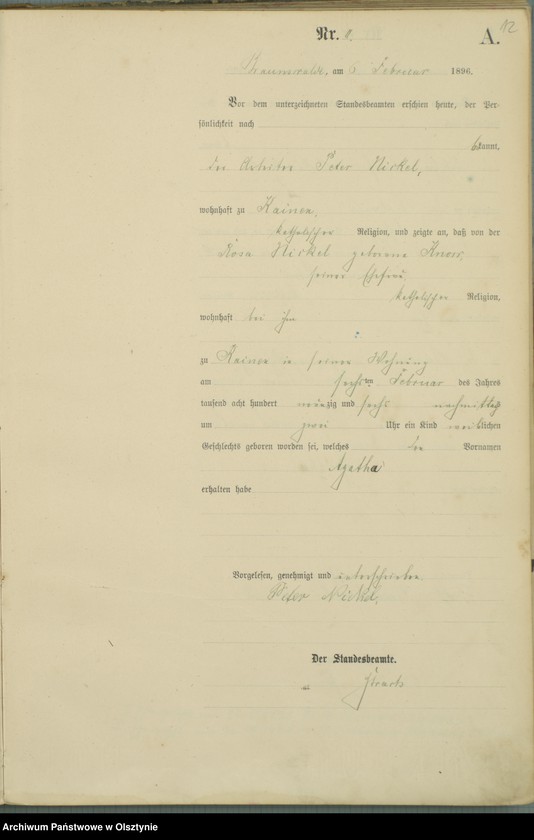 12
Nr. 8.
A.
Braunswalde, am 6 Februar 1896.
Vor dem unterzeichneten Standesbeamten erschien heute, der Per-
sönlichkeit nach
bekannt,
der Arbeiter Peter Nickel,
wohnhaft zu Kainen,
katholischer Religion, und zeigte an, daß von der
Rosa Nickel geborene Knorr,
seiner Ehefrau
katholischer Religion,
wohnhaft bei ihm
zu Kainen in seiner Wohnung
am sechsten Februar des Jahres
tausend acht hundert neunzig und sechs nachmittags
um zwei Uhr ein Kind weiblichen
Geschlechts geboren worden sei, welches den Vornamen
Agatha
erhalten habe
Vorgelesen, genehmigt und unterschrieben.
Peter Nickel,
Der Standesbeamte.
Archiwum Państwowe w Olsztynie